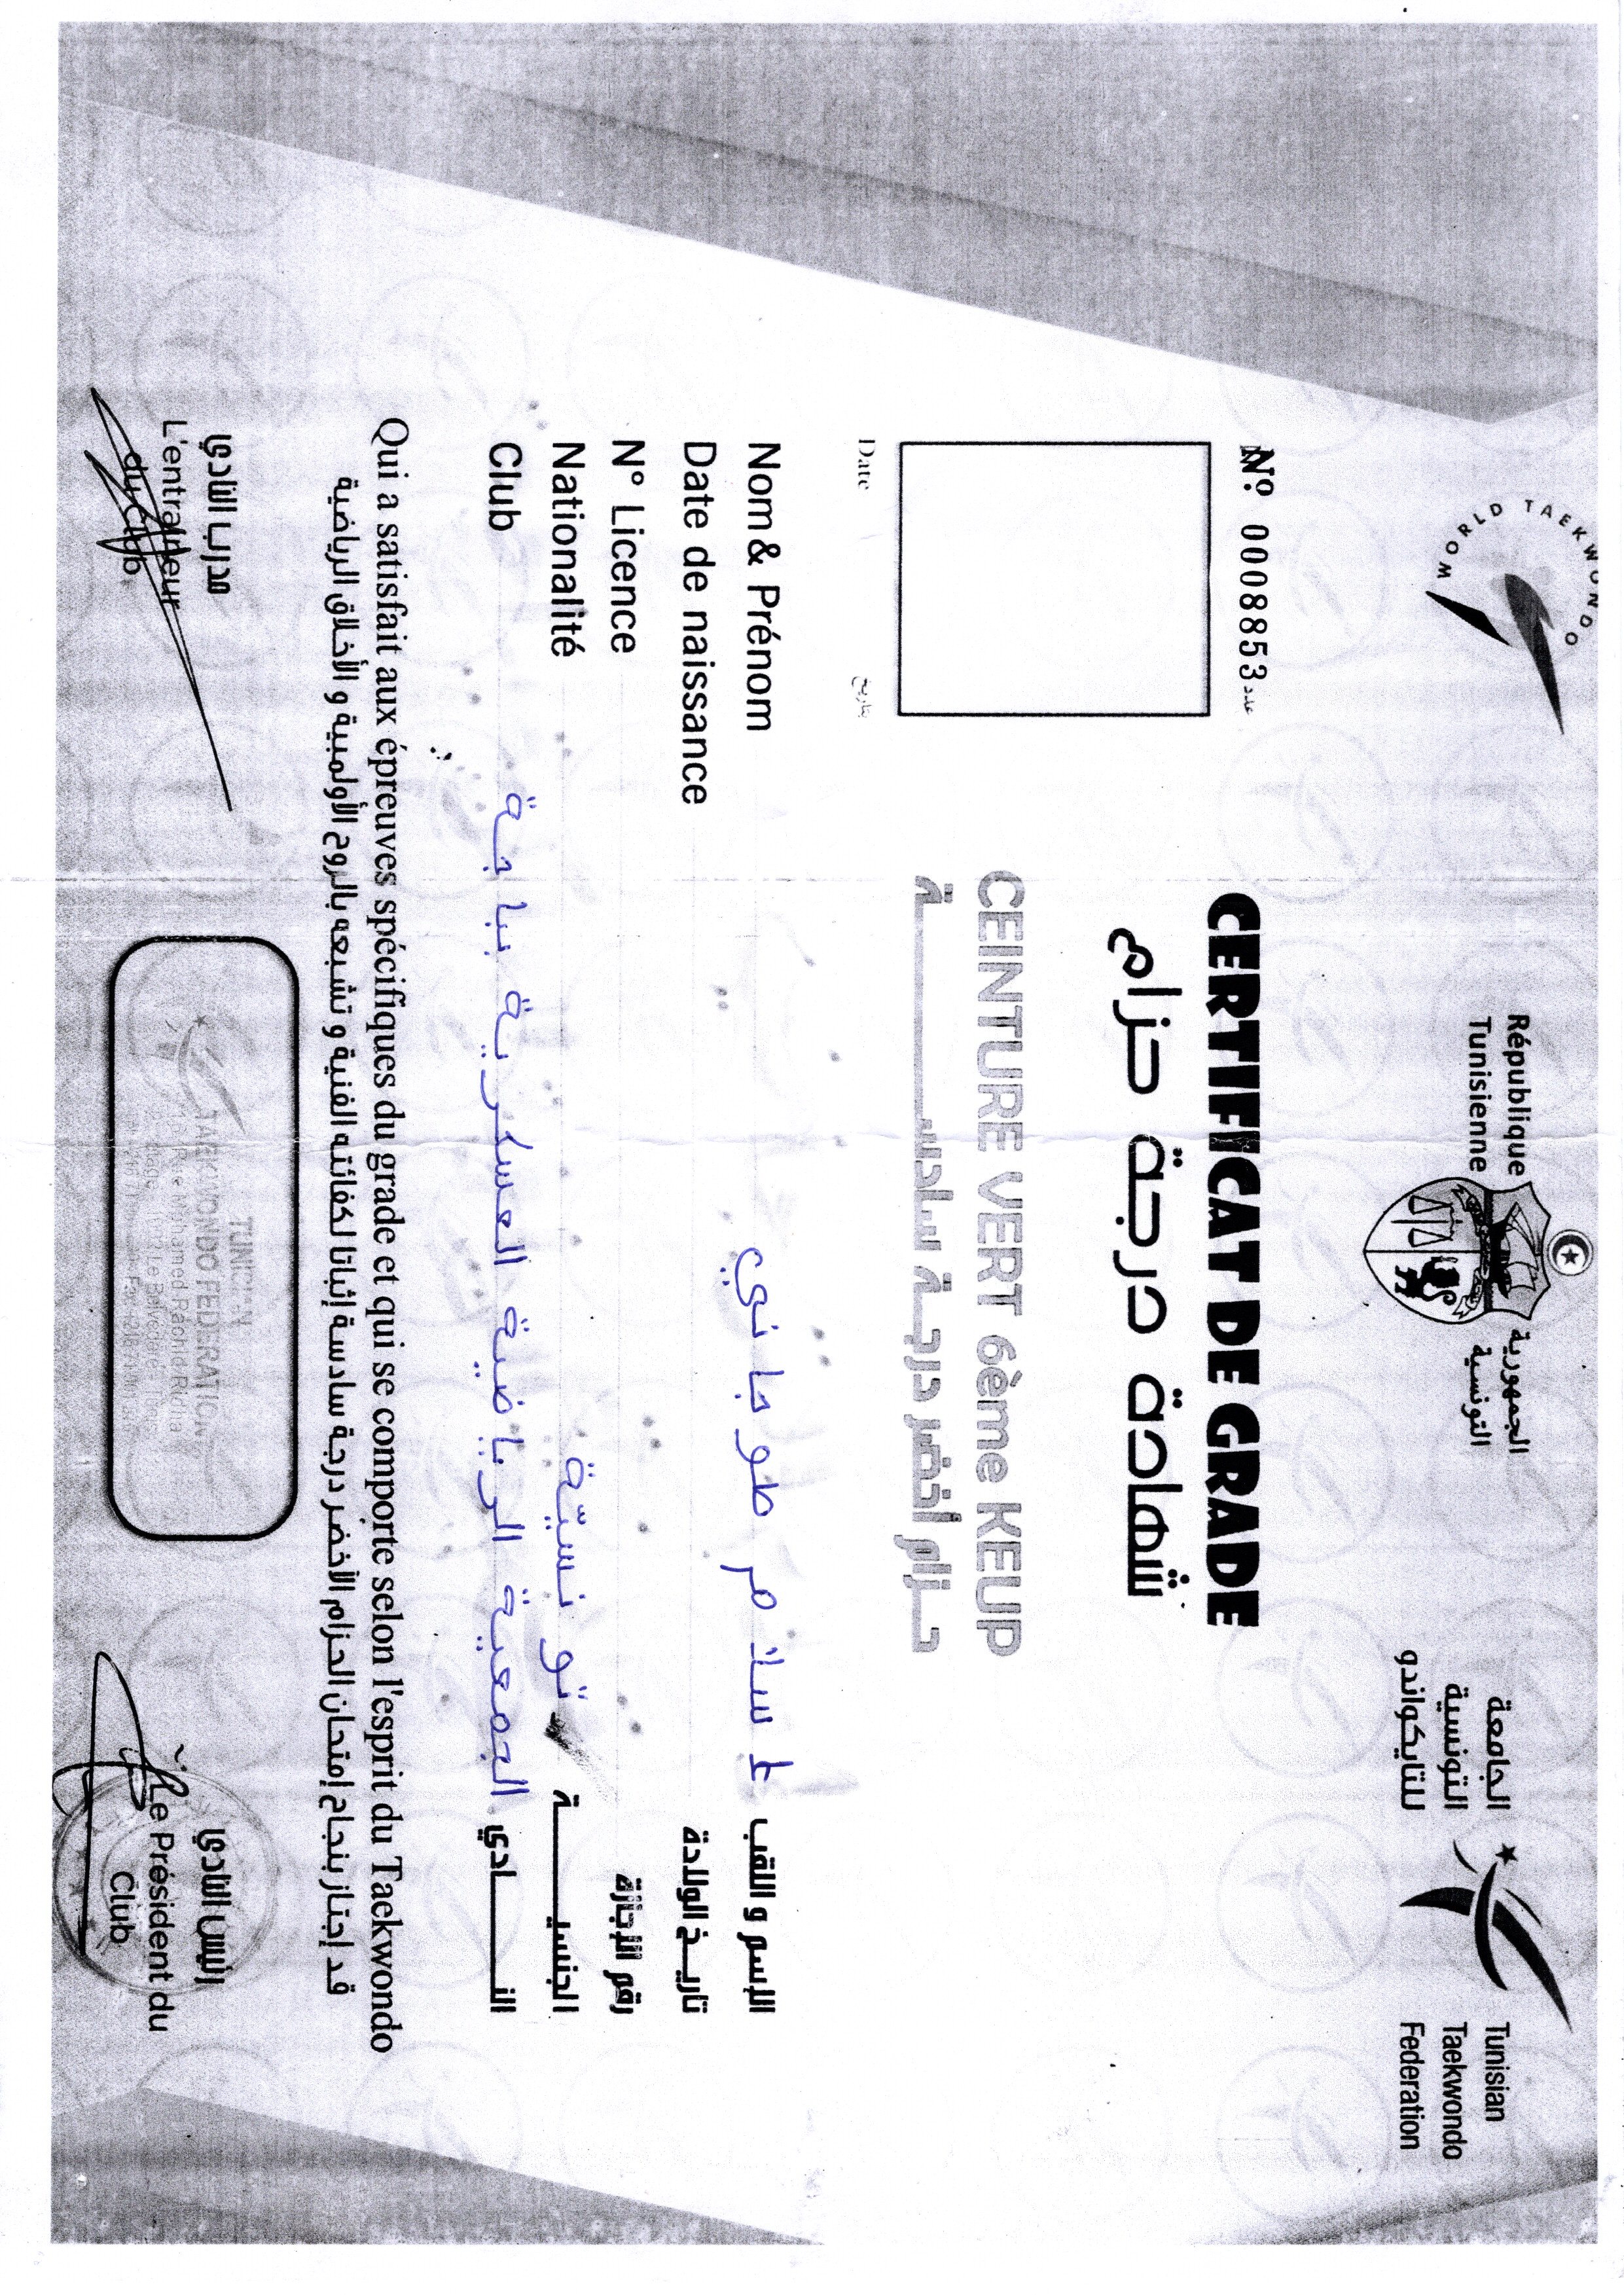 WORLD TAEKWONDO
République
Tunisienne
الجمهورية
التونسية
الجامعة
التونسية
للتايكواندو
Tunisian
Taekwondo
Federation
N° 0008853 عدد
CERTIFICAT DE GRADE
شهادة درجة حزام
CEINTURE VERT 6ème KEUP
حزام أخضر درجة سادسة
Date بتاريخ
Nom & Prénom طوجاني الإسم و اللقب
Date de naissance تاريخ الولادة
N° Licence رقم الإجازة
Nationalité تونسيّة الجنسية
Club الجمعية الرياضية العسكرية بباجة النادي
Qui a satisfait aux épreuves spécifiques du grade et qui se comporte selon l'esprit du Taekwondo
قد إجتاز بنجاح إمتحان الحزام الأخضر درجة سادسة إثباتا لكفائته الفنية و تشبعه بالروح الأولمبية و الأخلاق الرياضية
مدرب النادي
L'entraîneur
du Club
TUNISIAN
TAEKWONDO FEDERATION
Rue Mohamed Rachid Ridha
Le Belvédère
رئيس النادي
Le Président du
Club